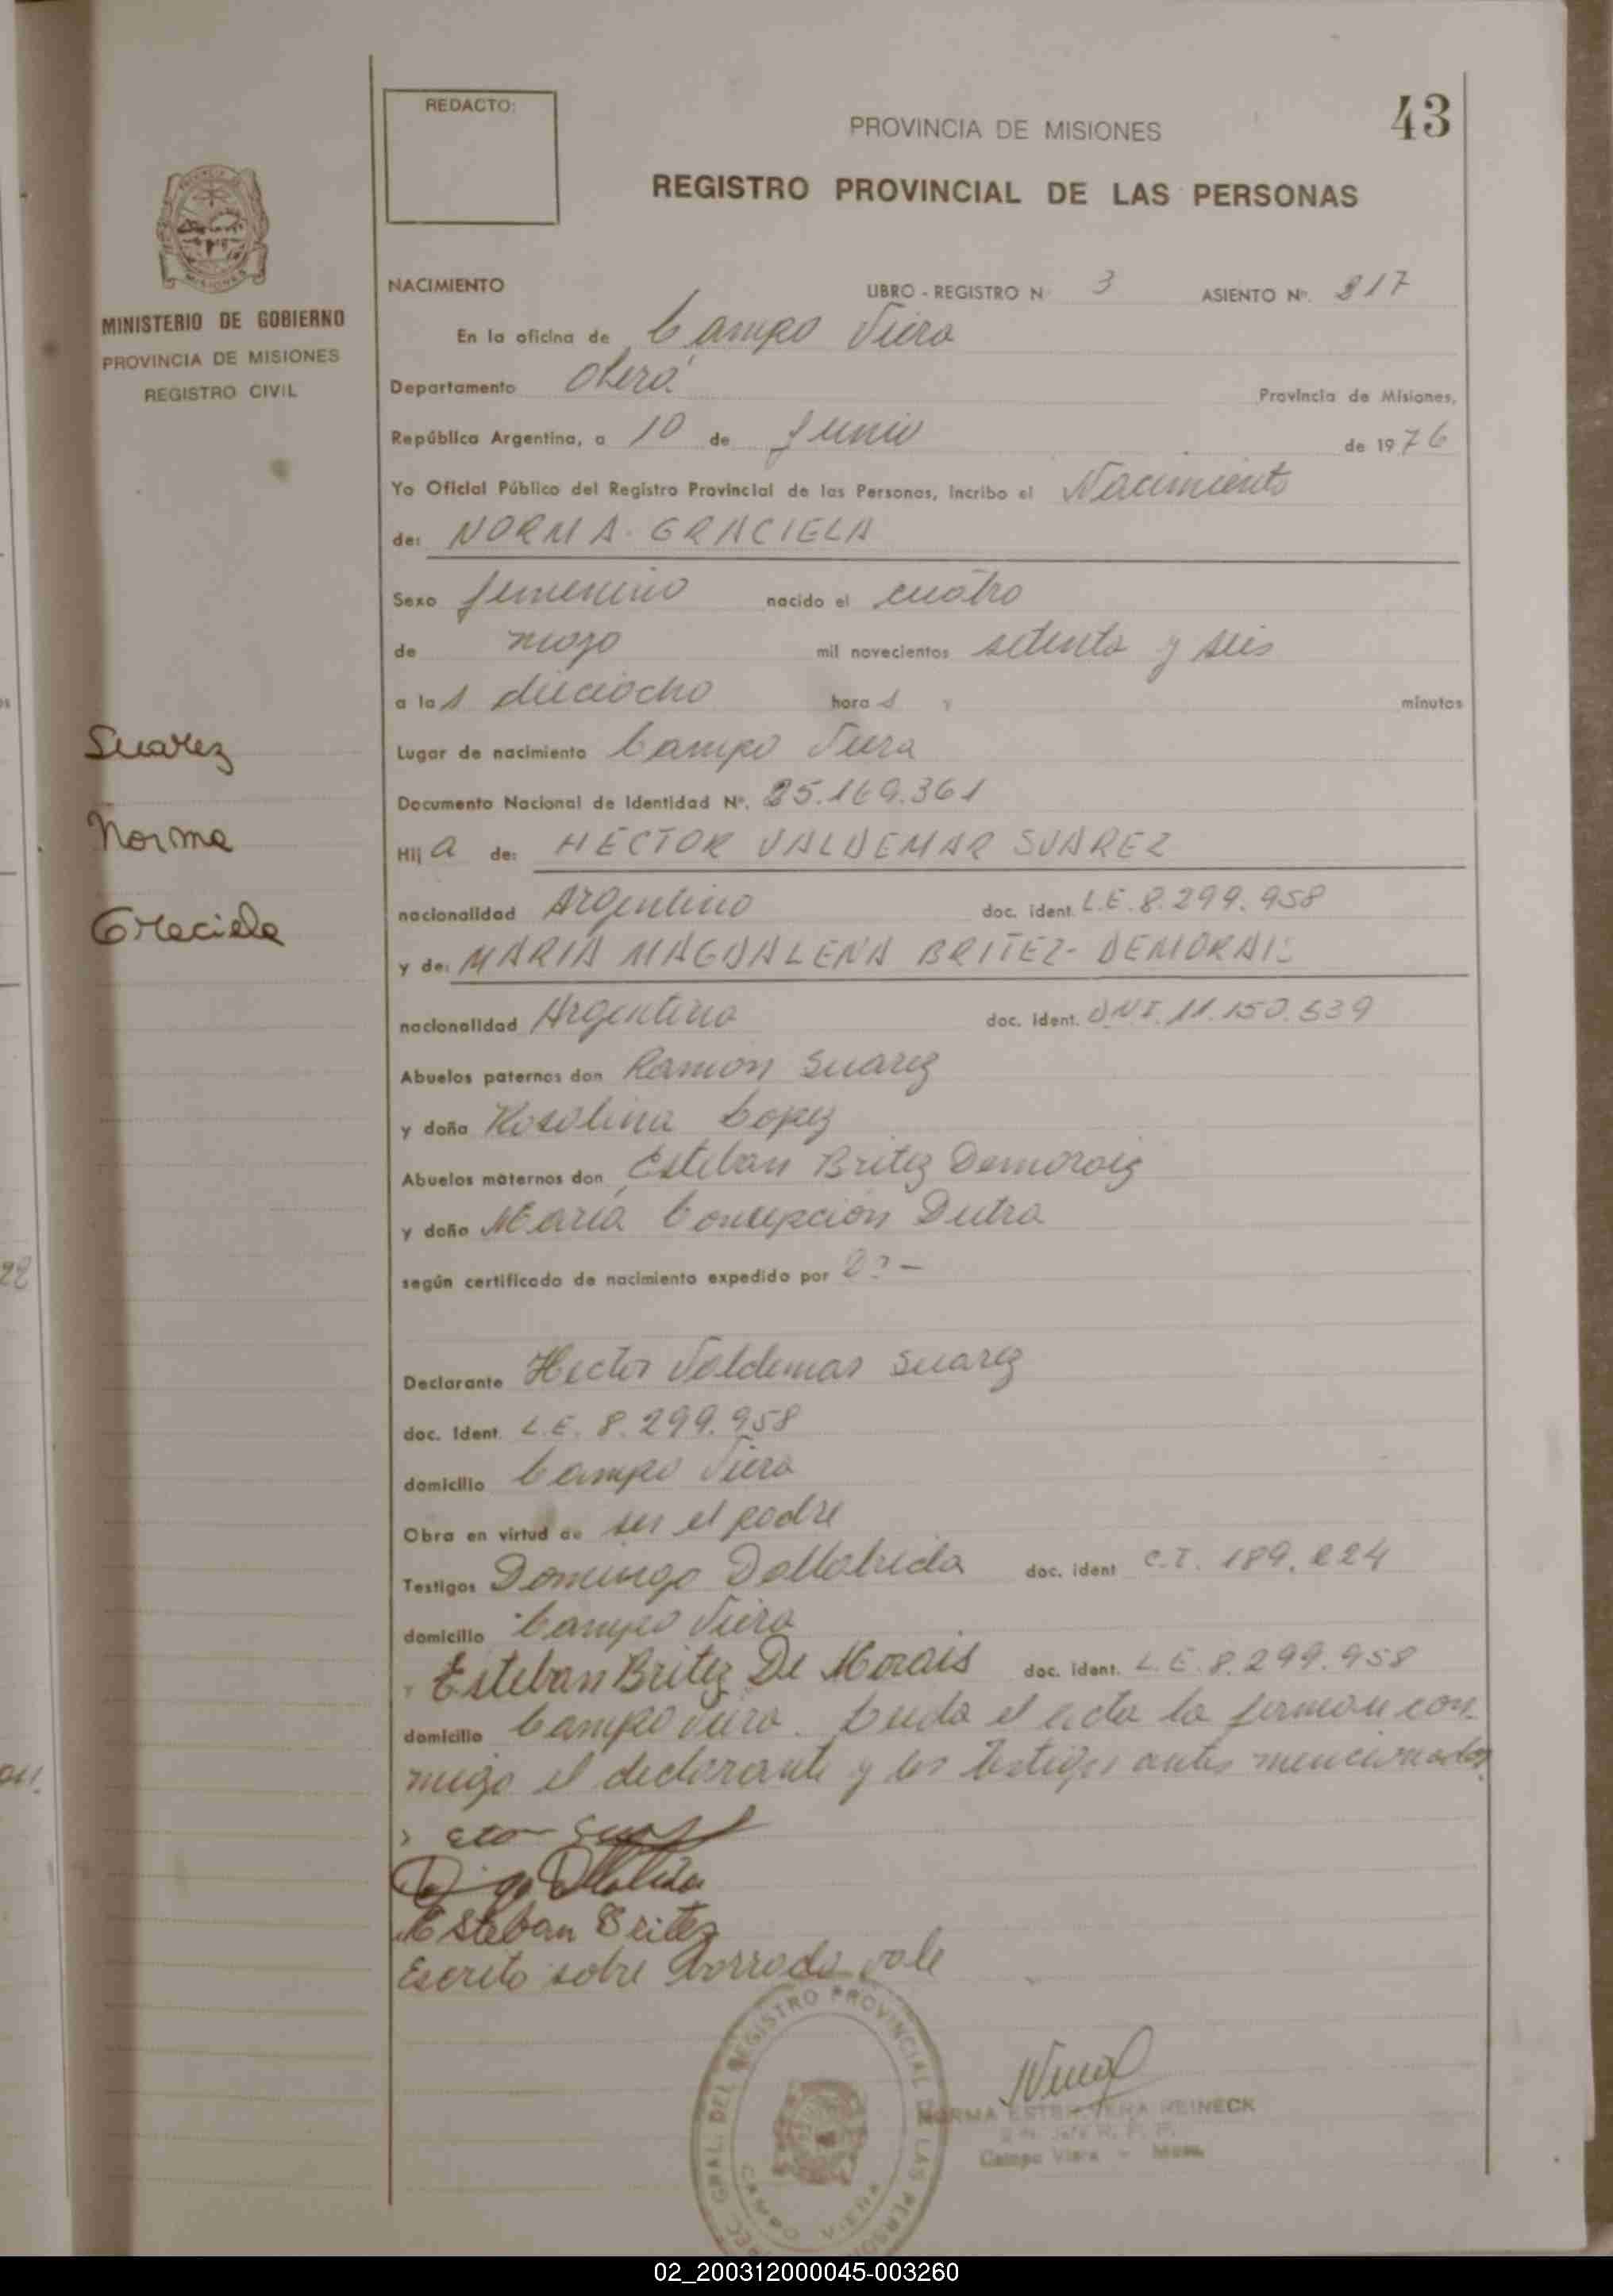 43
REDACTO:
PROVINCIA DE MISIONES
REGISTRO PROVINCIAL DE LAS PERSONAS
MINISTERIO DE GOBIERNO
PROVINCIA DE MISIONES
REGISTRO CIVIL
NACIMIENTO LIBRO - REGISTRO N 3 ASIENTO Nº. 817
En la oficina de Campo Viera
Departamento Oberá Provincia de Misiones,
República Argentina, a 10 de Junio de 1976
Yo Oficial Público del Registro Provincial de las Personas, incribo el Nacimiento
de: NORMA GRACIELA
Sexo femenino nacido el cuatro
de mayo mil novecientos setenta y seis
a las dieciocho horas minutos
Suarez
Norma
Graciela
Lugar de nacimiento Campo Viera
Documento Nacional de Identidad Nº. 25.169.361
Hija de: HECTOR VALDEMAR SUAREZ
nacionalidad Argentino doc. ident. L.E. 8.299.958
y de: MARIA MAGDALENA BRITEZ- DEMORAIS
nacionalidad Argentina doc. ident. DNI. 11.150.539
Abuelos paternos don Ramón Suarez
y doña Rosolina Lopez
Abuelos maternos don Esteban Britez Demorais
y doña María Concepción Dutra
según certificado de nacimiento expedido por
Declarante Hector Valdemar Suarez
doc. Ident. L.E. 8.299.958
domicilio Campo Viera
Obra en virtud de ser el padre
Testigos Domingo Dallabrida doc. ident C.I. 189.224
domicilio Campo Viera
Esteban Britez De Morais doc. ident. L.E. 8.299.958
domicilio Campo Viera. Leida el acta la firman con-
migo el declarante y los testigos antes mencionados
Esteban Britez
Escrito sobre borrado vale
GRAL. DEL REGISTRO PROVINCIAL DE LAS PERSON
CAMPO VIERA
NORMA ESTER VERA REINECK
Campo Viera - Mnes.
02_200312000045-003260